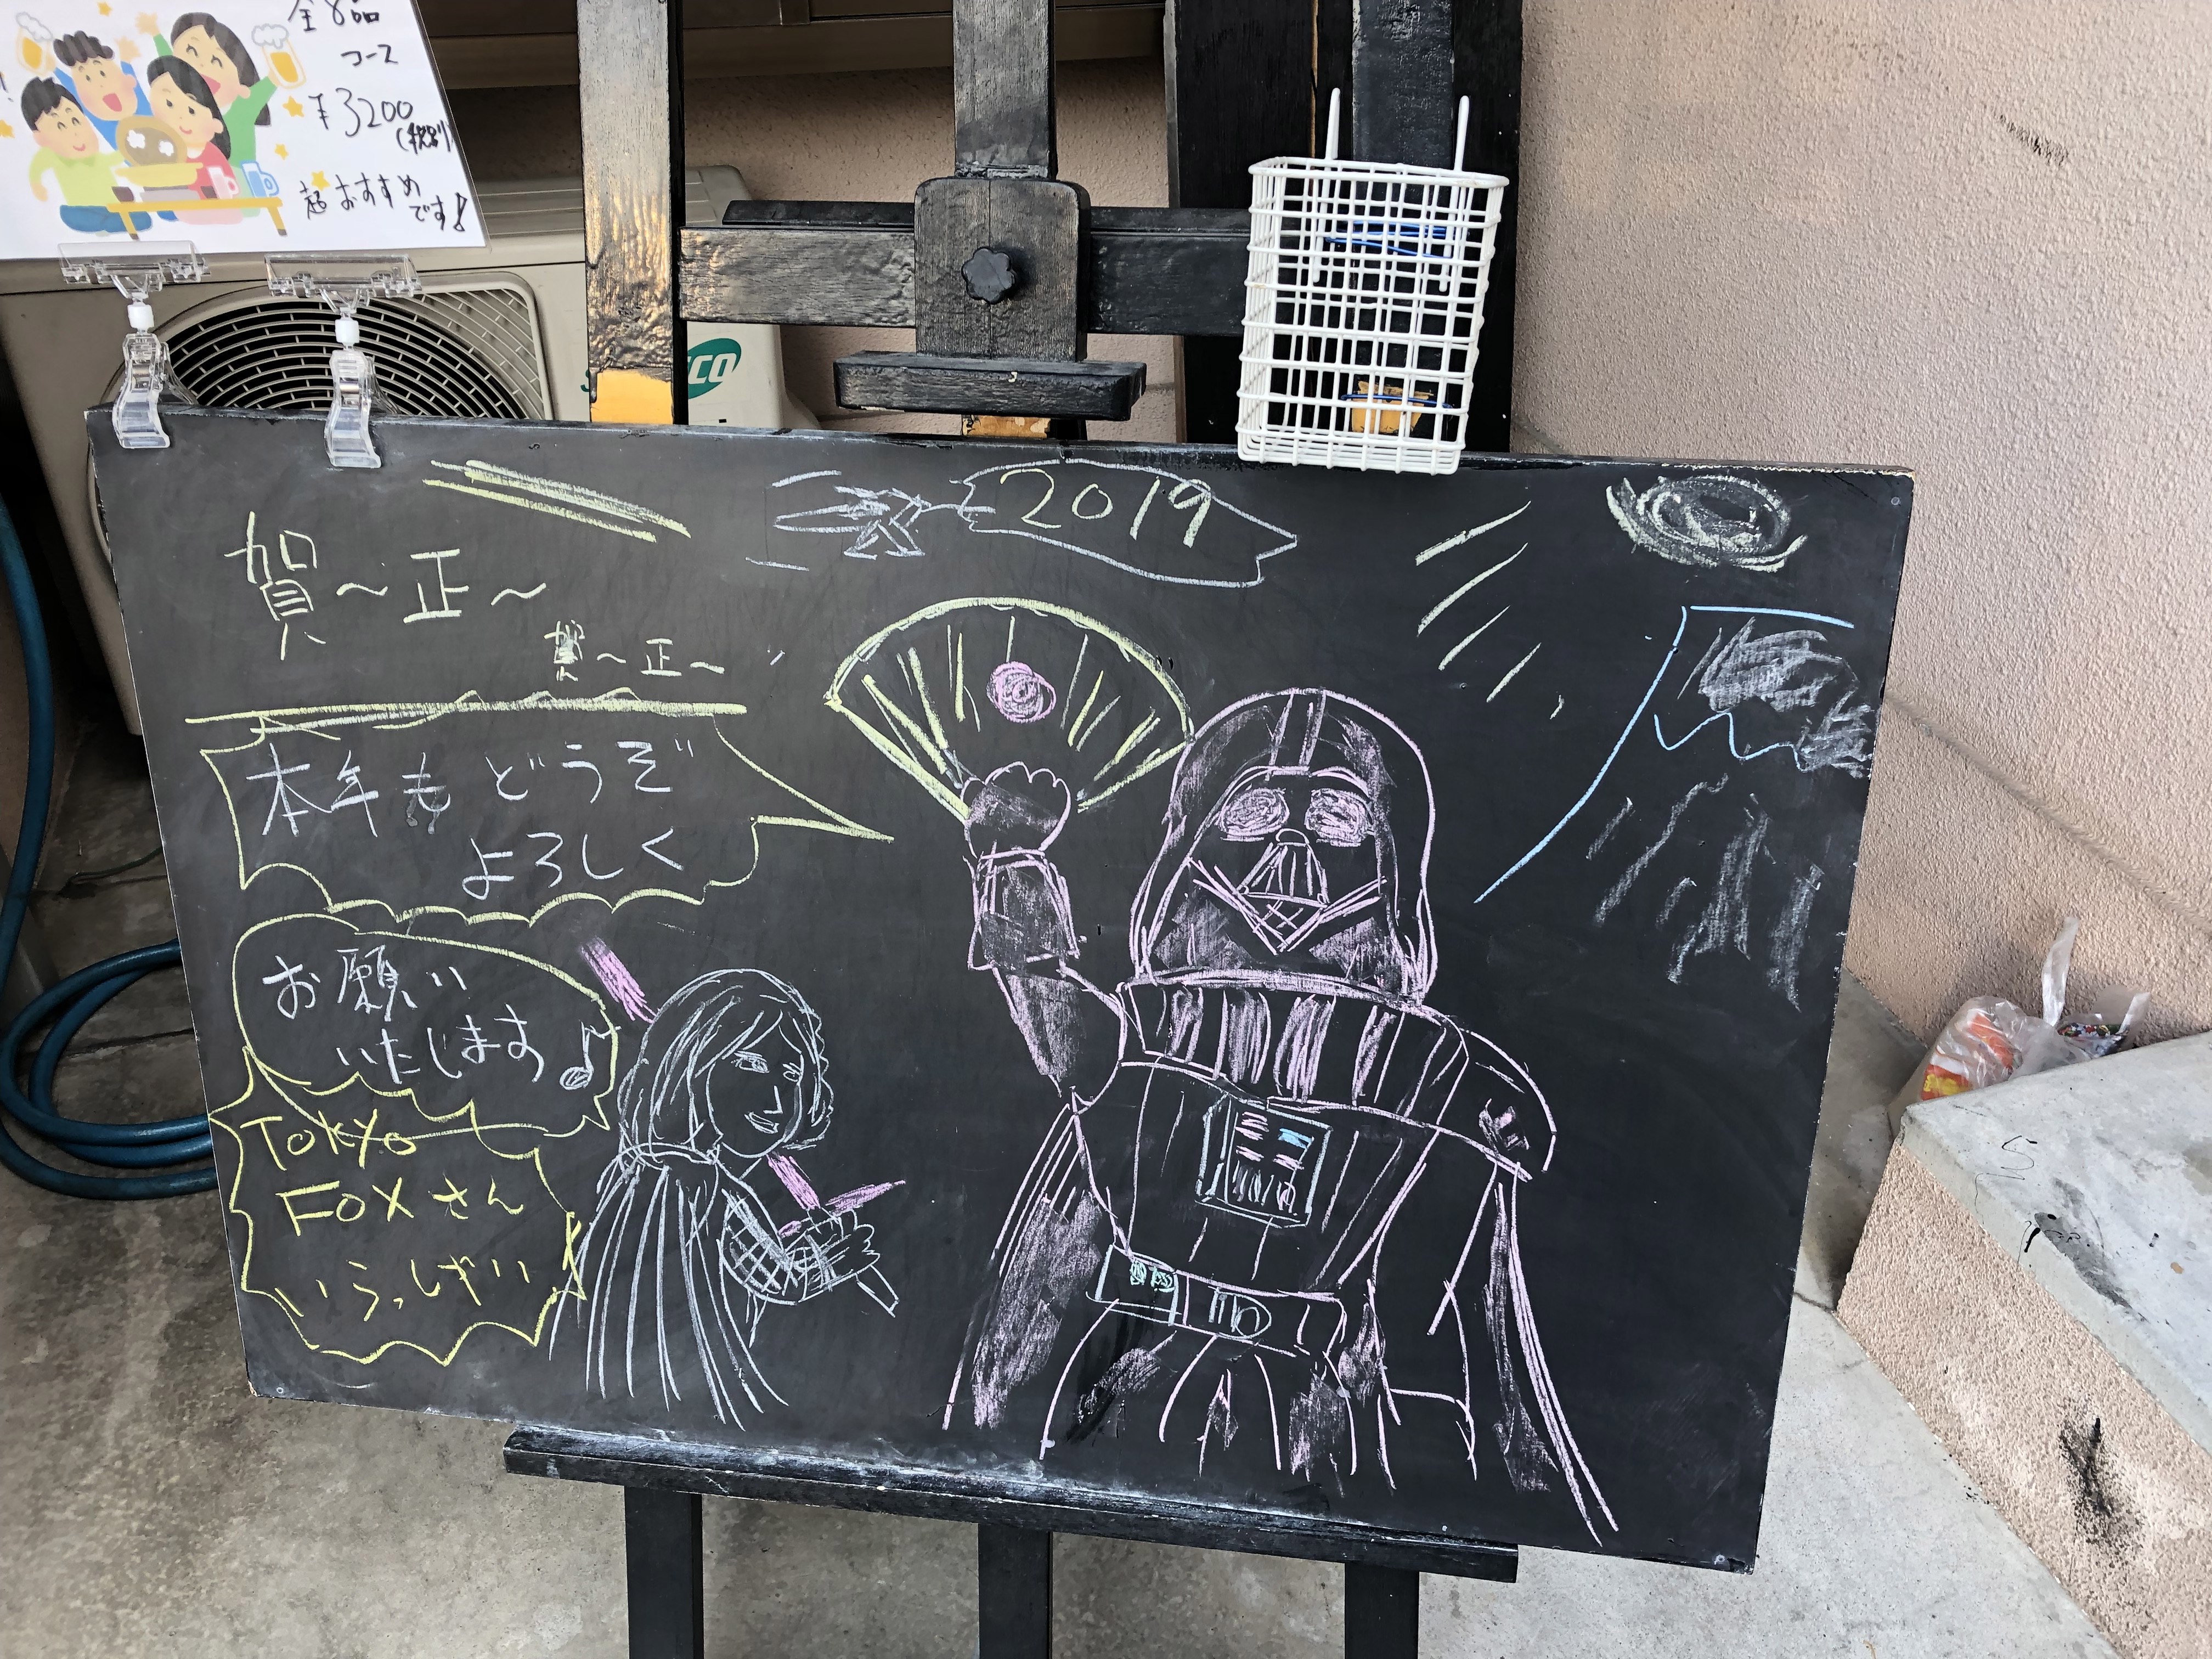 全8品
コース
¥3200
(税別)
超おすすめ
です!
2019
賀〜正〜
賀〜正〜
本年もどうぞ
よろしく
お願い
いたします♪
TOKYO
FOXさん
いらっしゃい!